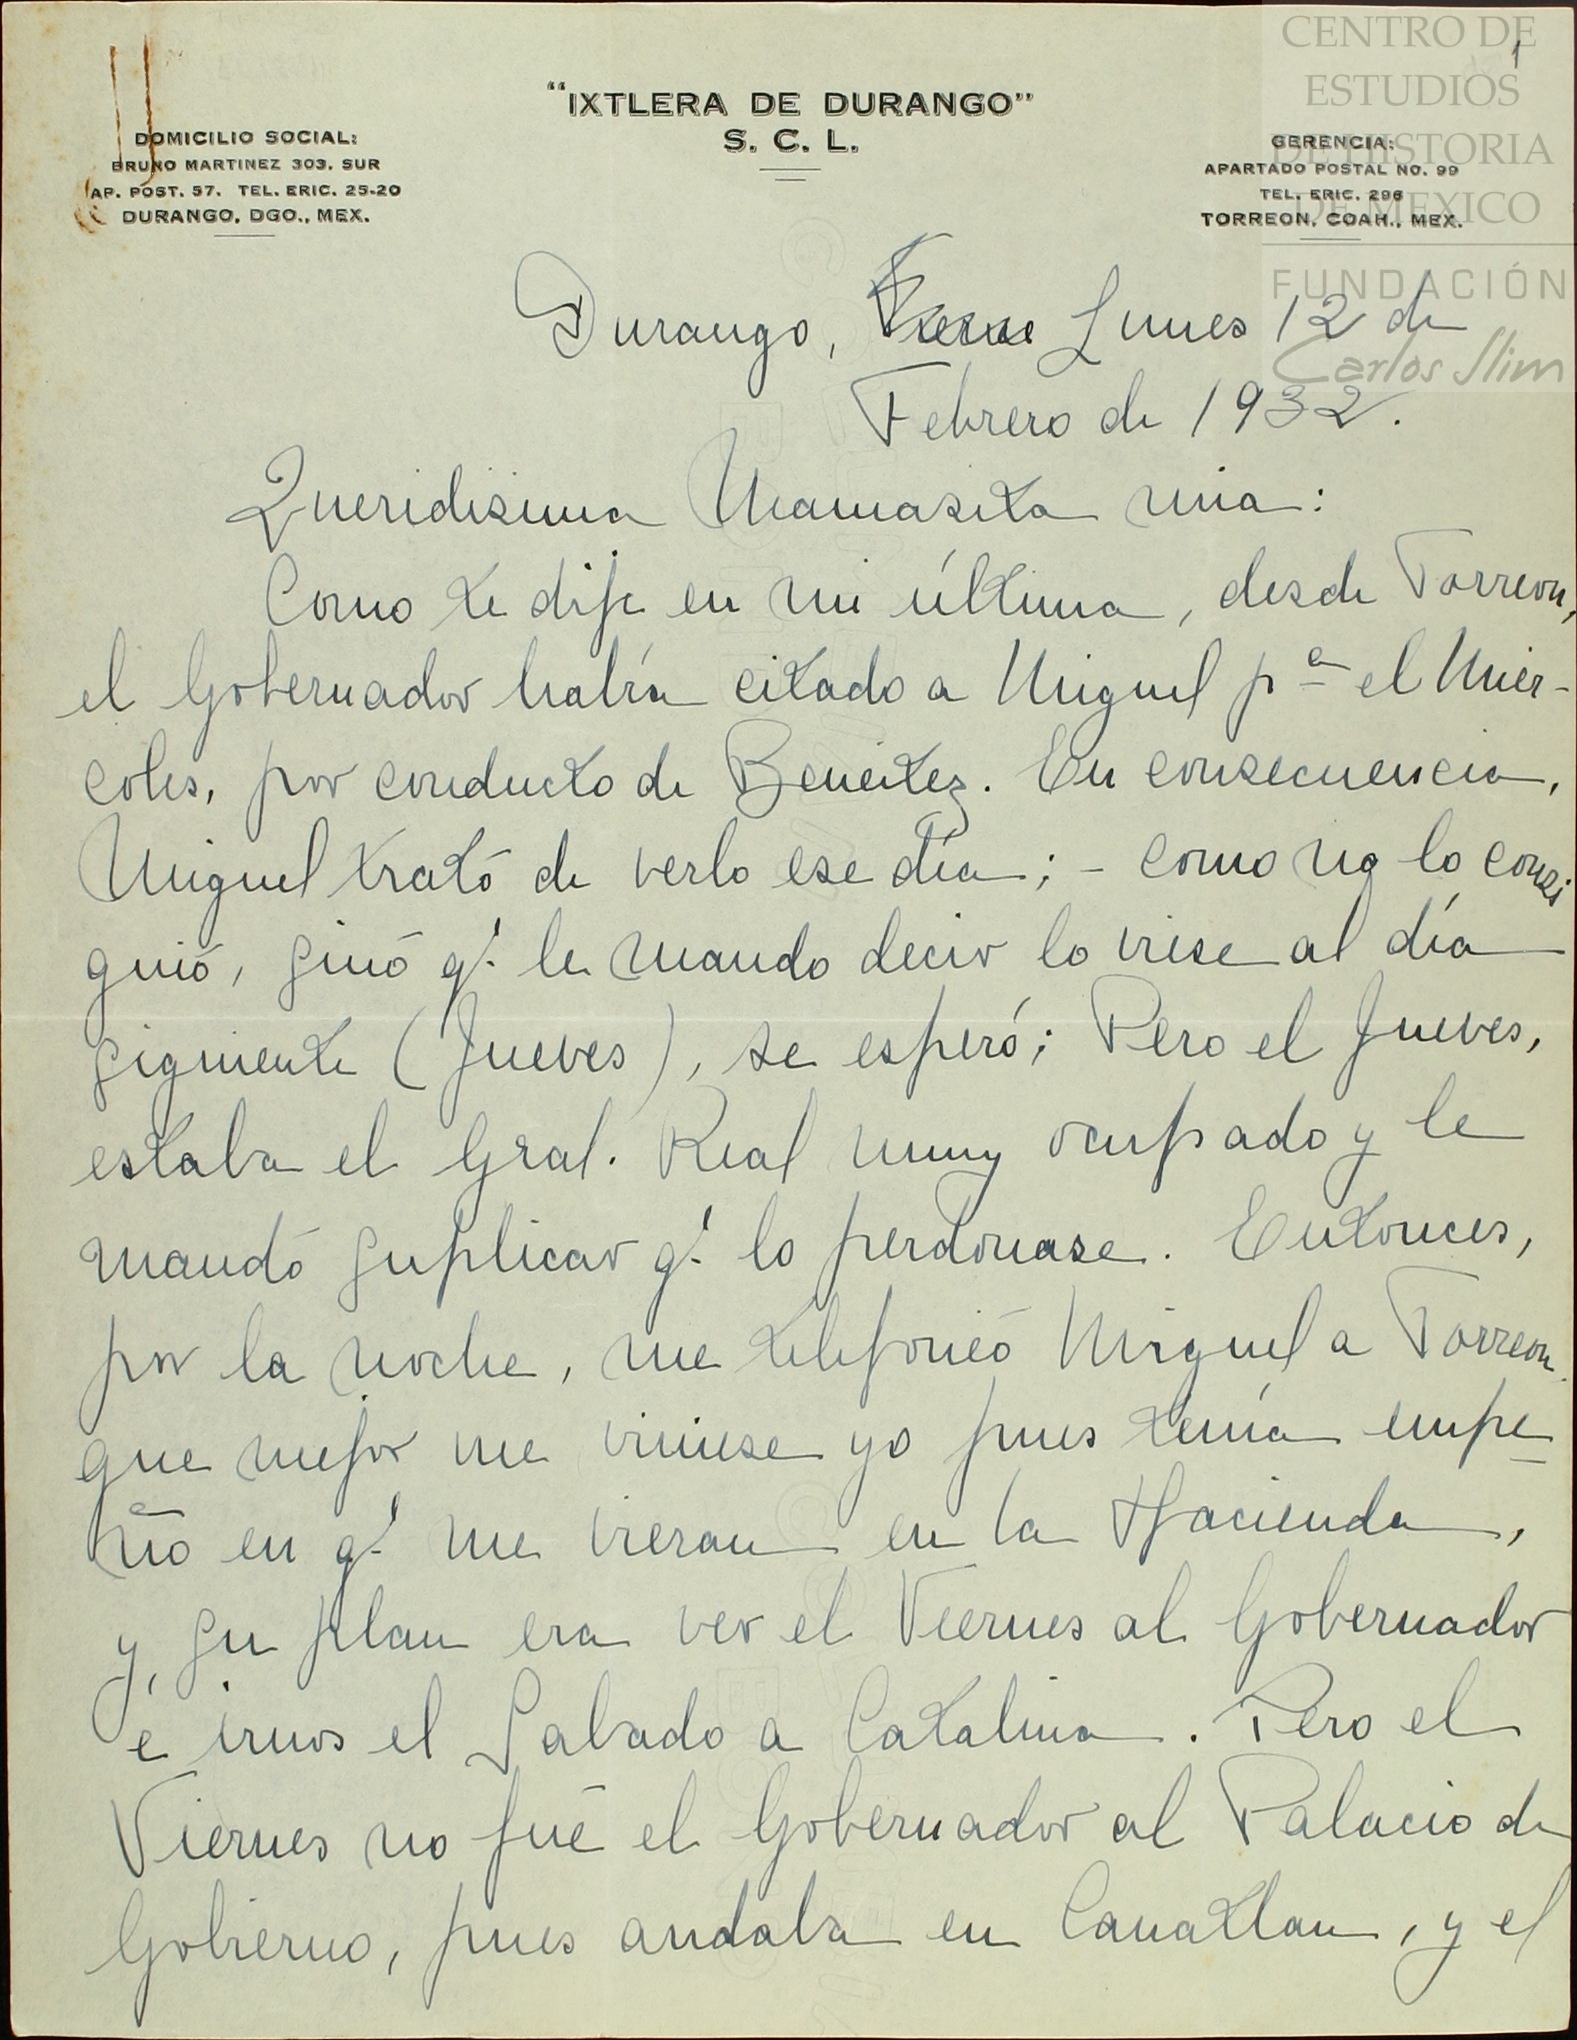 CENTRO DE
ESTUDIOS
DE HISTORIA
DE MEXICO
FUNDACIÓN
Carlos Slim
1
"IXTLERA DE DURANGO"
S. C. L.
DOMICILIO SOCIAL:
BRUNO MARTINEZ 303. SUR
AP. POST. 57. TEL. ERIC. 25-20
DURANGO, DGO., MEX.
GERENCIA:
APARTADO POSTAL NO. 99
TEL. ERIC. 296
TORREON, COAH., MEX.
Durango, Lunes 12 de
Febrero de 1932.
Queridisima Mamasita mia:
Como te dije en mi última, desde Torreon,
el Gobernador había citado a Miguel pª el Miér-
coles, por conducto de Beneitez. En consecuencia,
Miguel trató de verlo ese día; - como no lo consi
guió, sinó q! le mando decir lo viese al día
siguiente (Jueves), se esperó; Pero el Jueves,
estaba el Gral. Real muy ocupado y le
mandó suplicar q! lo perdonase. Entonces,
por la noche, me telefoneó Miguel a Torreon.
que mejor me viniese yo pues tenía empe
ño en q! me vieran en la Hacienda,
y, su plan era ver el Viernes al Gobernador
é irnos el Sabado a Catalina. Pero el
Viernes no fué el Gobernador al Palacio de
Gobierno, pues andaba en Canatlan, y el